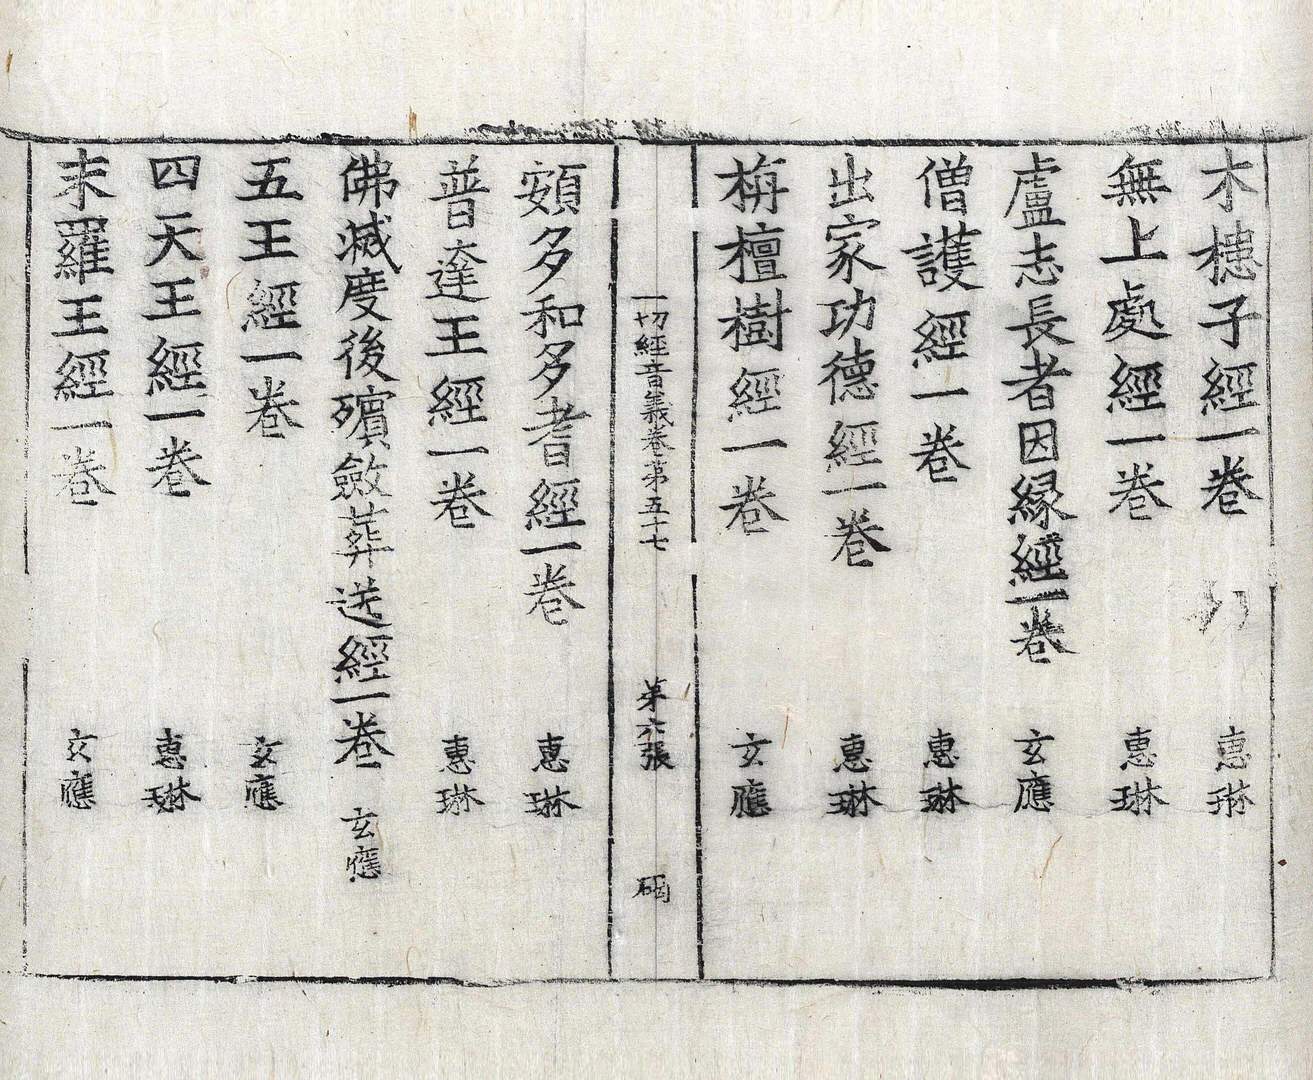 木槵子經一卷 惠琳
無上處經一卷 惠琳
盧志長者因緣經一卷 玄應
僧護經一卷 惠琳
出家功德經一卷 惠琳
栴檀樹經一卷 玄應
一切經音義卷第五十七 第六張
頞多和多耆經一卷 惠琳
普達王經一卷 惠琳
佛滅度後殯斂葬送經一卷 玄應
五王經一卷 玄應
四天王經一卷 惠琳
末羅王經一卷 玄應